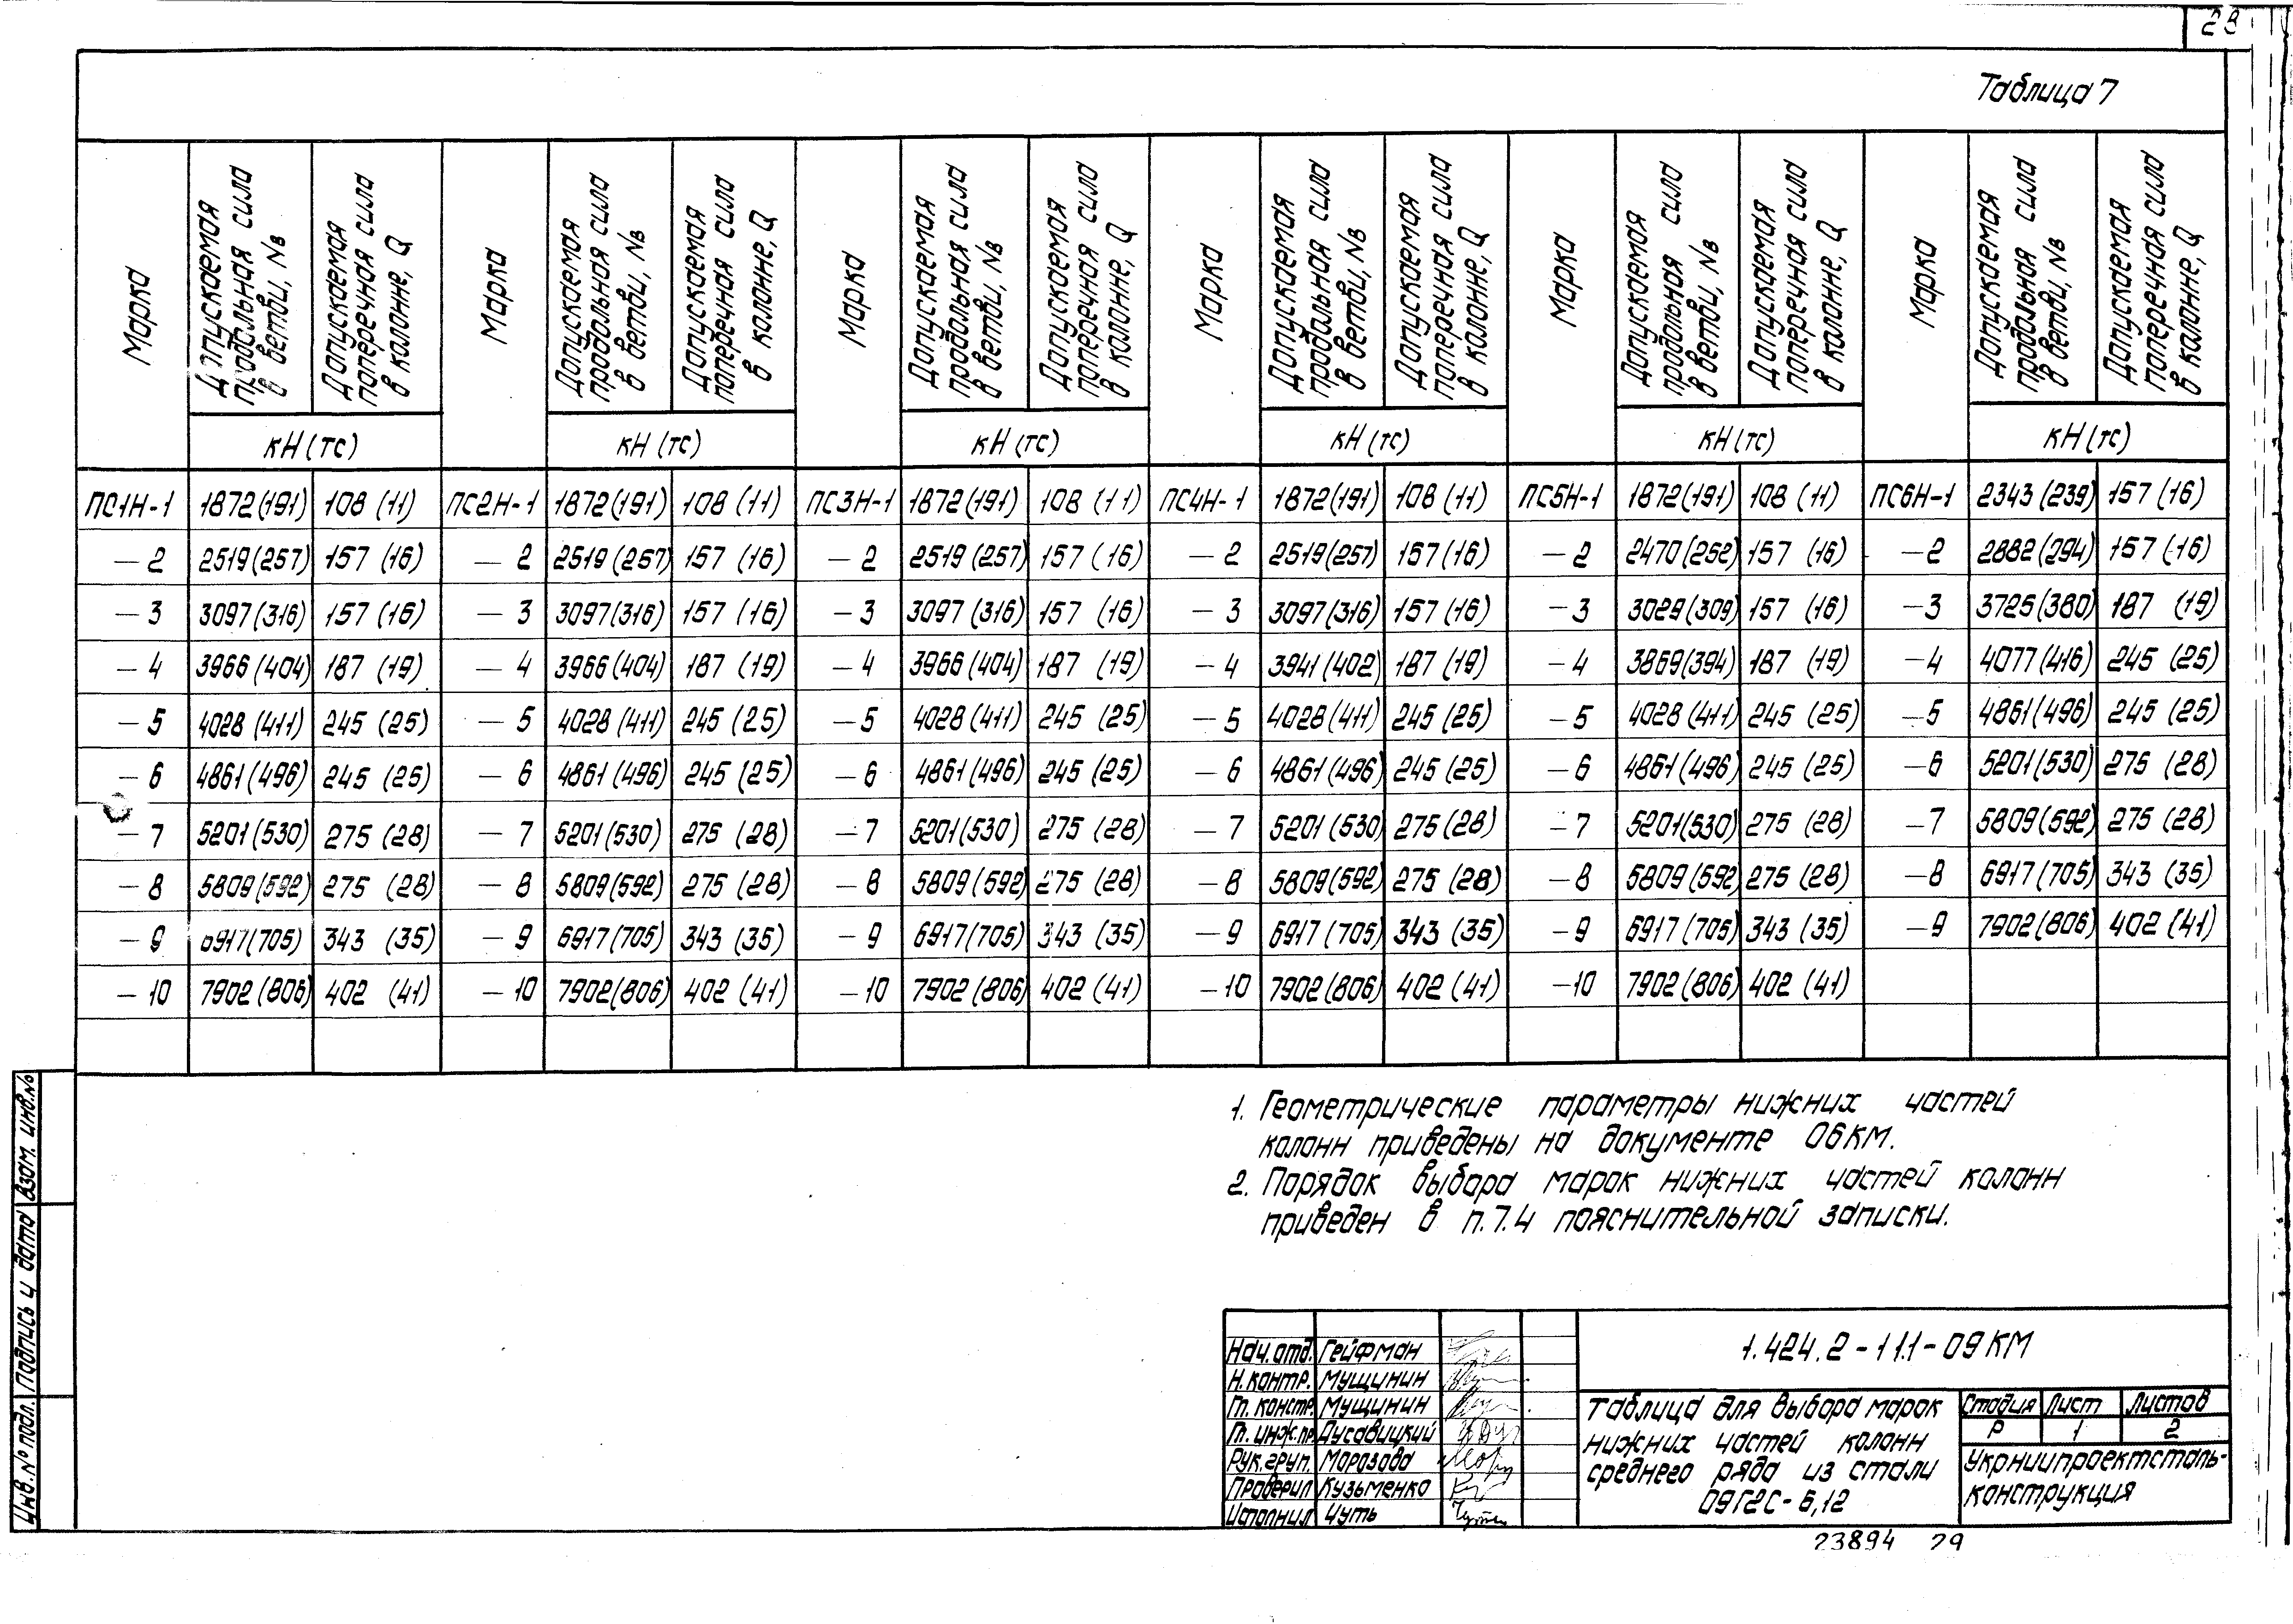 28
Таблица 7
Марка | Допускаемая продольная сила в ветви, Nв | Допускаемая поперечная сила в колонне, Q | Марка | Допускаемая продольная сила в ветви, Nв | Допускаемая поперечная сила в колонне, Q | Марка | Допускаемая продольная сила в ветви, Nв | Допускаемая поперечная сила в колонне, Q | Марка | Допускаемая продольная сила в ветви, Nв | Допускаемая поперечная сила в колонне, Q | Марка | Допускаемая продольная сила в ветви, Nв | Допускаемая поперечная сила в колонне, Q | Марка | Допускаемая продольная сила в ветви, Nв | Допускаемая поперечная сила в колонне, Q
кН (тс) | кН (тс) | кН (тс) | кН (тс) | кН (тс) | кН (тс)
ПС1Н-1 | 1872(191) | 108 (11) | ПС2Н-1 | 1872(191) | 108 (11) | ПС3Н-1 | 1872(191) | 108 (11) | ПС4Н-1 | 1872(191) | 108 (11) | ПС5Н-1 | 1872(191) | 108 (11) | ПС6Н-1 | 2343(239) | 157 (16)
—2 | 2519(257) | 157 (16) | —2 | 2519(257) | 157 (16) | —2 | 2519(257) | 157 (16) | —2 | 2519(257) | 157(16) | —2 | 2470(252) | 157 (16) | —2 | 2882(294) | 157 (16)
—3 | 3097(316) | 157 (16) | —3 | 3097(316) | 157 (16) | —3 | 3097(316) | 157 (16) | —3 | 3097(316) | 157(16) | —3 | 3029(309) | 157 (16) | —3 | 3725(380) | 187 (19)
—4 | 3966(404) | 187 (19) | —4 | 3966(404) | 187 (19) | —4 | 3966(404) | 187 (19) | —4 | 3941(402) | 187 (19) | —4 | 3869(394) | 187 (19) | —4 | 4077(416) | 245 (25)
—5 | 4028(411) | 245 (25) | —5 | 4028(411) | 245 (25) | —5 | 4028(411) | 245 (25) | —5 | 4028(411) | 245 (25) | —5 | 4028(411) | 245 (25) | —5 | 4861(496) | 245 (25)
—6 | 4861(496) | 245 (25) | —6 | 4861(496) | 245 (25) | —6 | 4861(496) | 245 (25) | —6 | 4861(496) | 245 (25) | —6 | 4861(496) | 245 (25) | —6 | 5201(530) | 275 (28)
—7 | 5201(530) | 275 (28) | —7 | 5201(530) | 275 (28) | —7 | 5201(530) | 275 (28) | —7 | 5201(530) | 275(28) | —7 | 5201(530) | 275 (28) | —7 | 5809(592) | 275 (28)
—8 | 5809(592) | 275 (28) | —8 | 5809(592) | 275 (28) | —8 | 5809(592) | 275 (28) | —8 | 5809(592) | 275 (28) | —8 | 5809(592 | 275 (28) | —8 | 6917(705) | 343 (35)
—9 | 6917(705) | 343 (35) | —9 | 6917(705) | 343 (35) | —9 | 6917(705) | 343 (35) | —9 | 6917(705) | 343 (35) | —9 | 6917(705) | 343 (35) | —9 | 7902(806) | 402 (41)
—10 | 7902(806) | 402 (41) | —10 | 7902(806) | 402 (41) | —10 | 7902(806) | 402 (41) | —10 | 7902(806) | 402 (41) | —10 | 7902(806) | 402 (41)
1. Геометрические параметры нижних частей
колонн приведены на документе 06КМ.
2. Порядок выбора марок нижних частей колонн
приведен в п.7.4 пояснительной записки.
Инв.№ подл. | Подпись и дата | Взам. инв.№
Нач.отд. Гейфман
Н.контр. Мущинин
Гл. констр. Мущинин
Гл. инж.пр. Дусавицкий
Рук.груп. Морозова
Проверил Кузьменко
Исполнил Чуть
1.424.2-11.1-09КМ
Таблица для выбора марок
нижних частей колонн
среднего ряда из стали
09Г2С-6,12
Стадия Лист Листов
Р 1 2
Укрниипроектсталь-
конструкция
23894 29